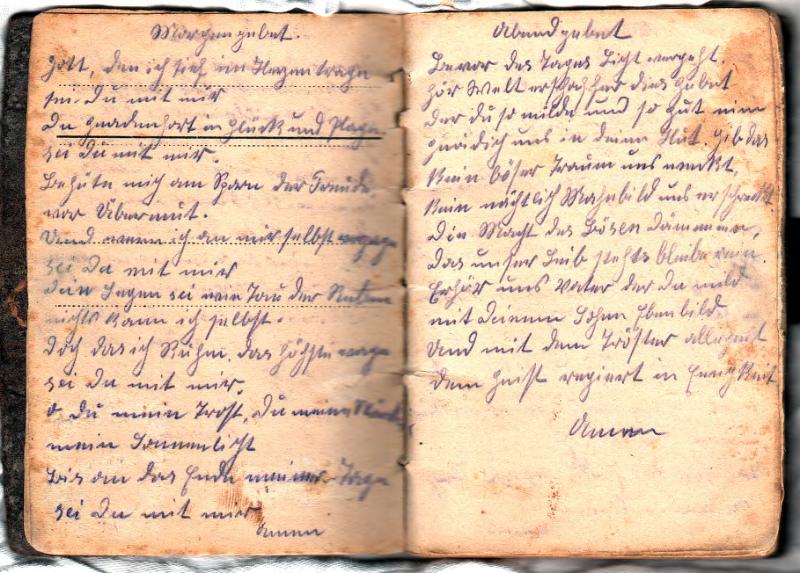 Morgengebet.
Gott, den ich tief im Herzen trage
sei Du mit mir
Du Gnadenhort in Glück und Plage
sei Du mit mir.
Behüte mich am Born der Freude
vor Übermut.
Und wenn ich an mir selbst verzage
sei Du mit mir
Dein Segen sei wie Tau der Reben
nichts kann ich selbst.
Doch das ich Kühn das höchste wage
sei Du mit mir.
O Du mein Trost, Du meine Stärke
mein Sonnenlicht
Bis an das Ende meiner Tage
sei Du mit mir
Amen
Abendgebet
Bevor des Tages Licht vergeht.
Hör Welterschaffer dies Gebet
Der du so milde und so gut nim
gnädich uns in deine Hut. Gib das
Kein böser Traum uns weckt,
Kein nächtlich Wahnbild uns erschreckt
Die Macht des Bösen dämme ein,
das unser Leib stehts bleibe rein.
Erhör uns Vater der Du mild
mit Deinem Sohne Ebenbild
Und mit dem Tröster allezeit
dem Geist regiert in Ewigkeit
Amen